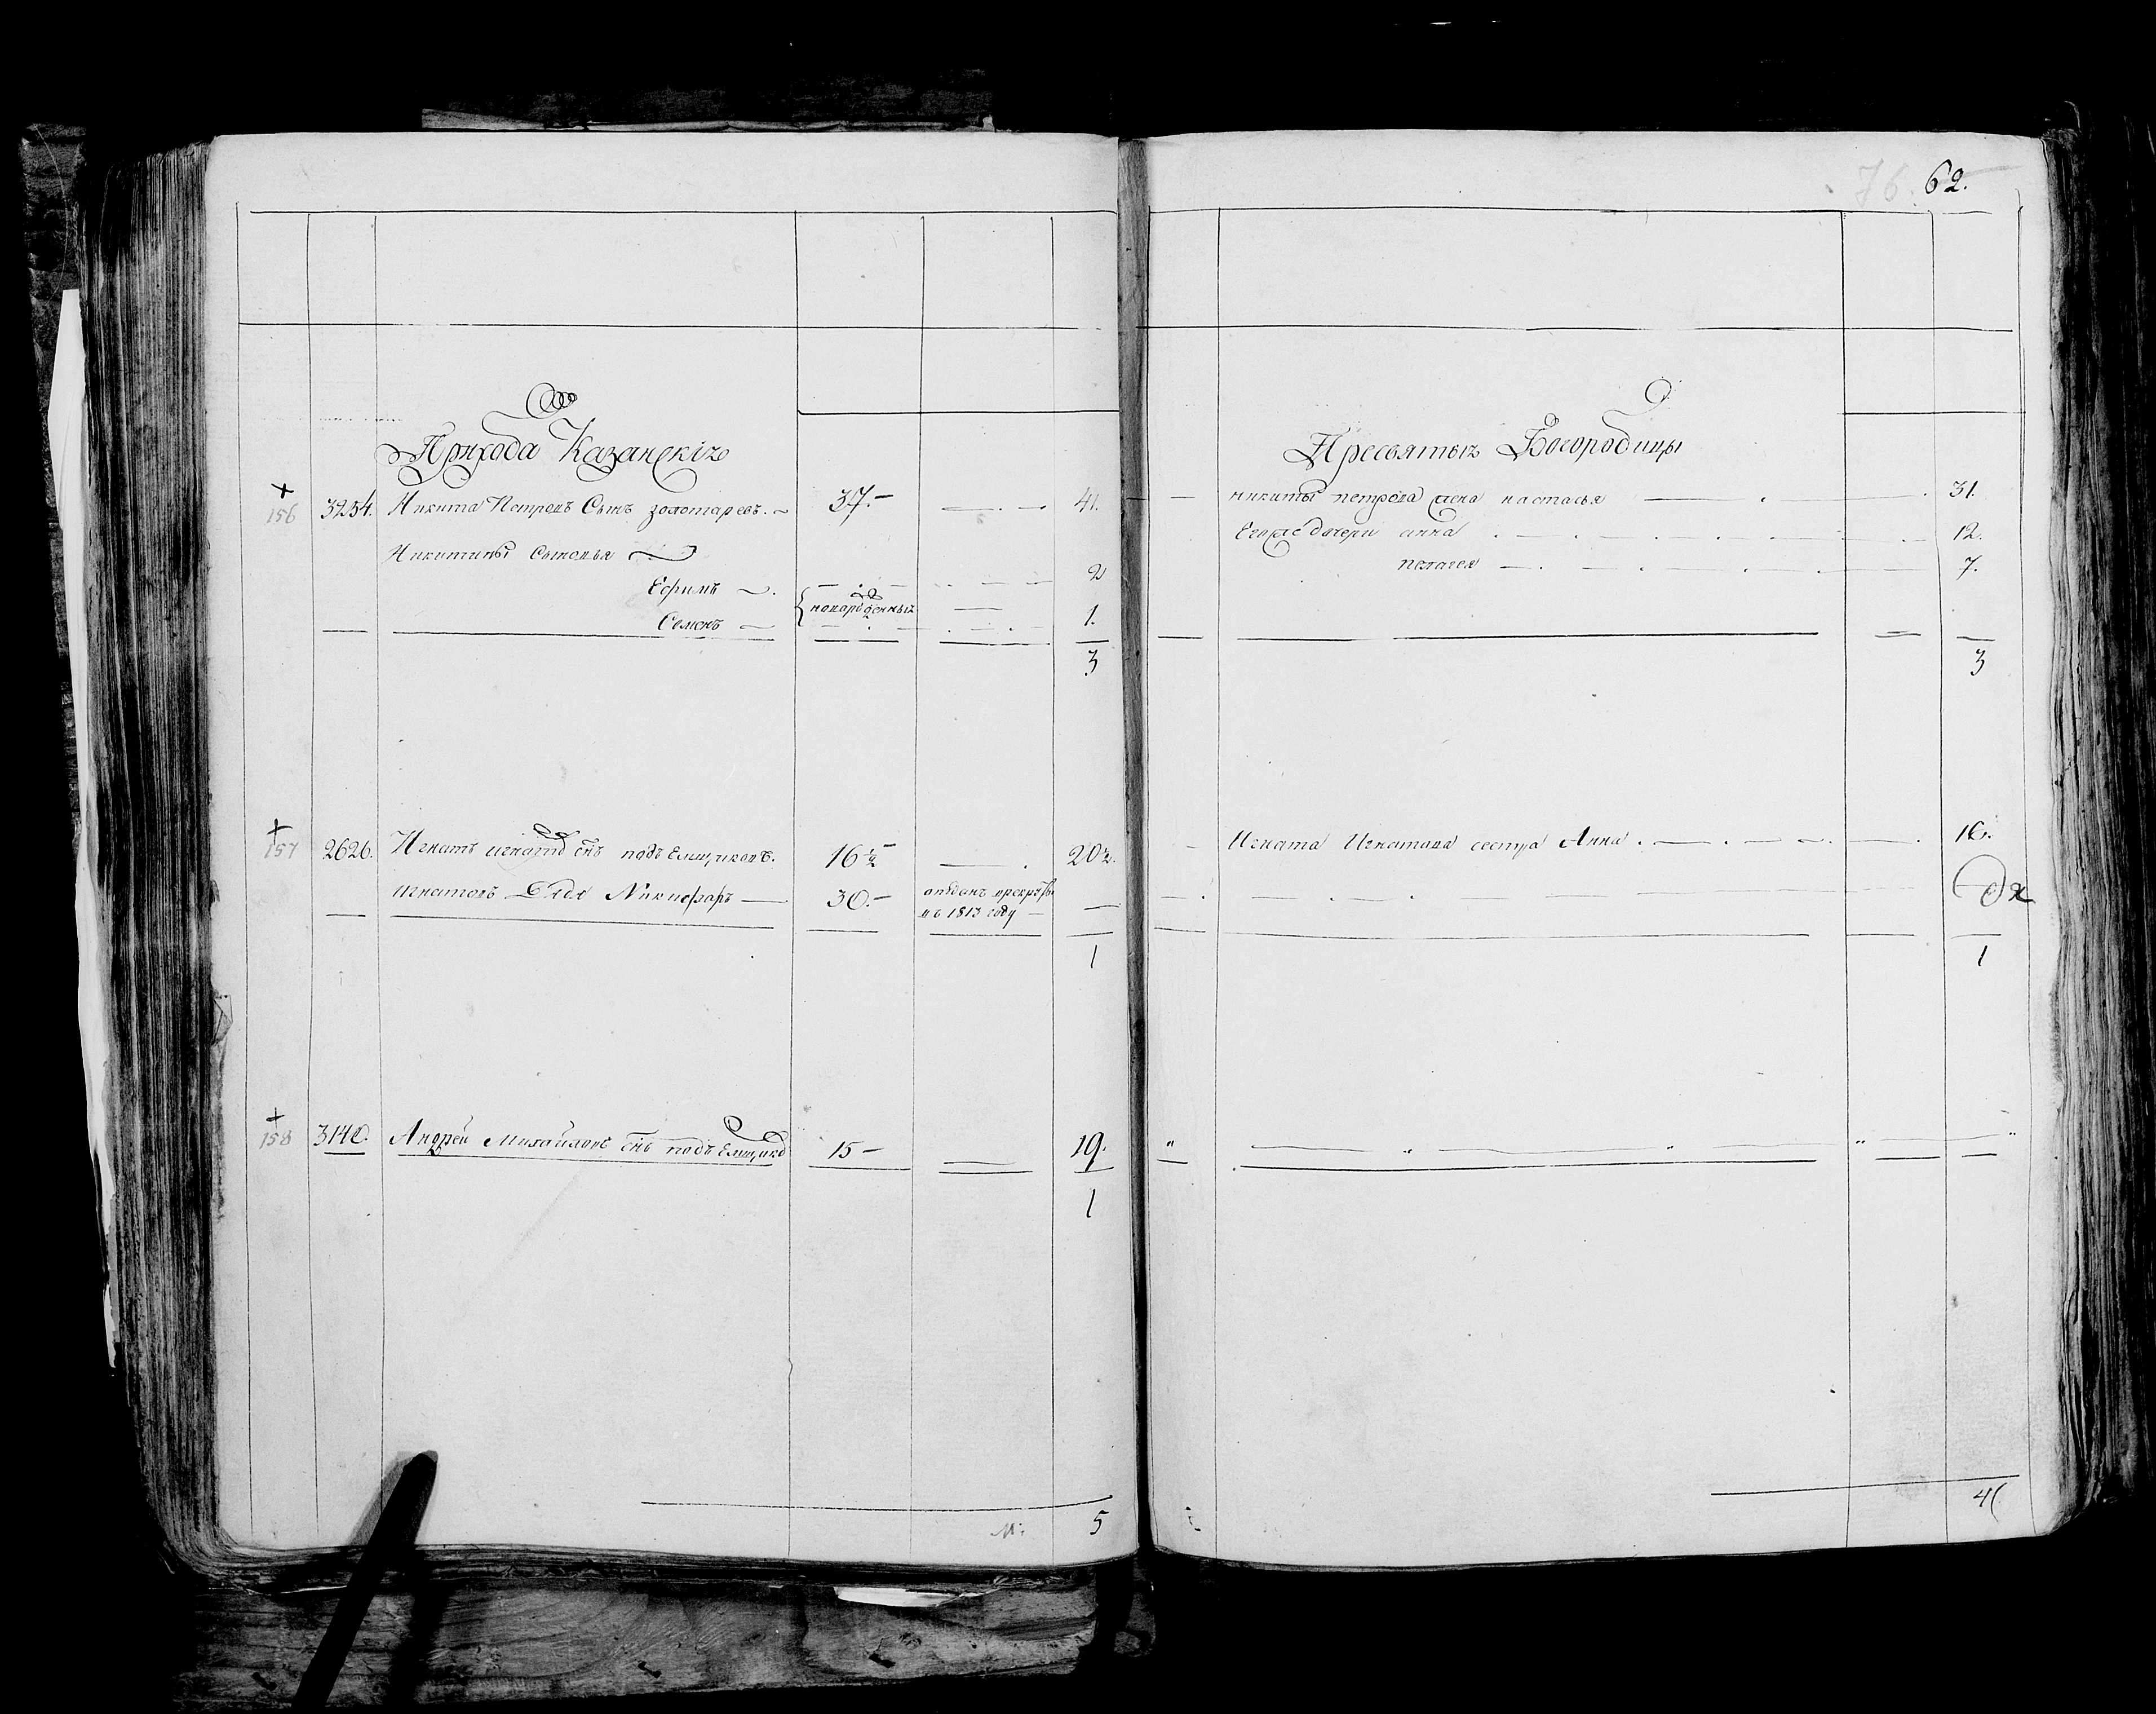 76. 62.
Прихода Казанскія
156 3254. Никита Петровъ Сынъ золотаревъ. 37. 41.
Никитины Сыновья
Ефимъ 2
новорожденныя
Семенъ 1.
3
157 2626. Игнатъ игнатов снъ подъ Емщиковъ. 16 ½ 20 ½.
игнатовъ Дядя Никифоръ 30. отданъ
въ 1813 году
1
158 3140. Андрей Михайловъ снъ подъ Емщиков 15 19.
1
5
Пресвятыя Богородицы
никиты петрова жена настасья 31.
Его же дочери анна 12.
пелагея 7.
3
Игната Игнатова сестра Анна. 16.
1
4